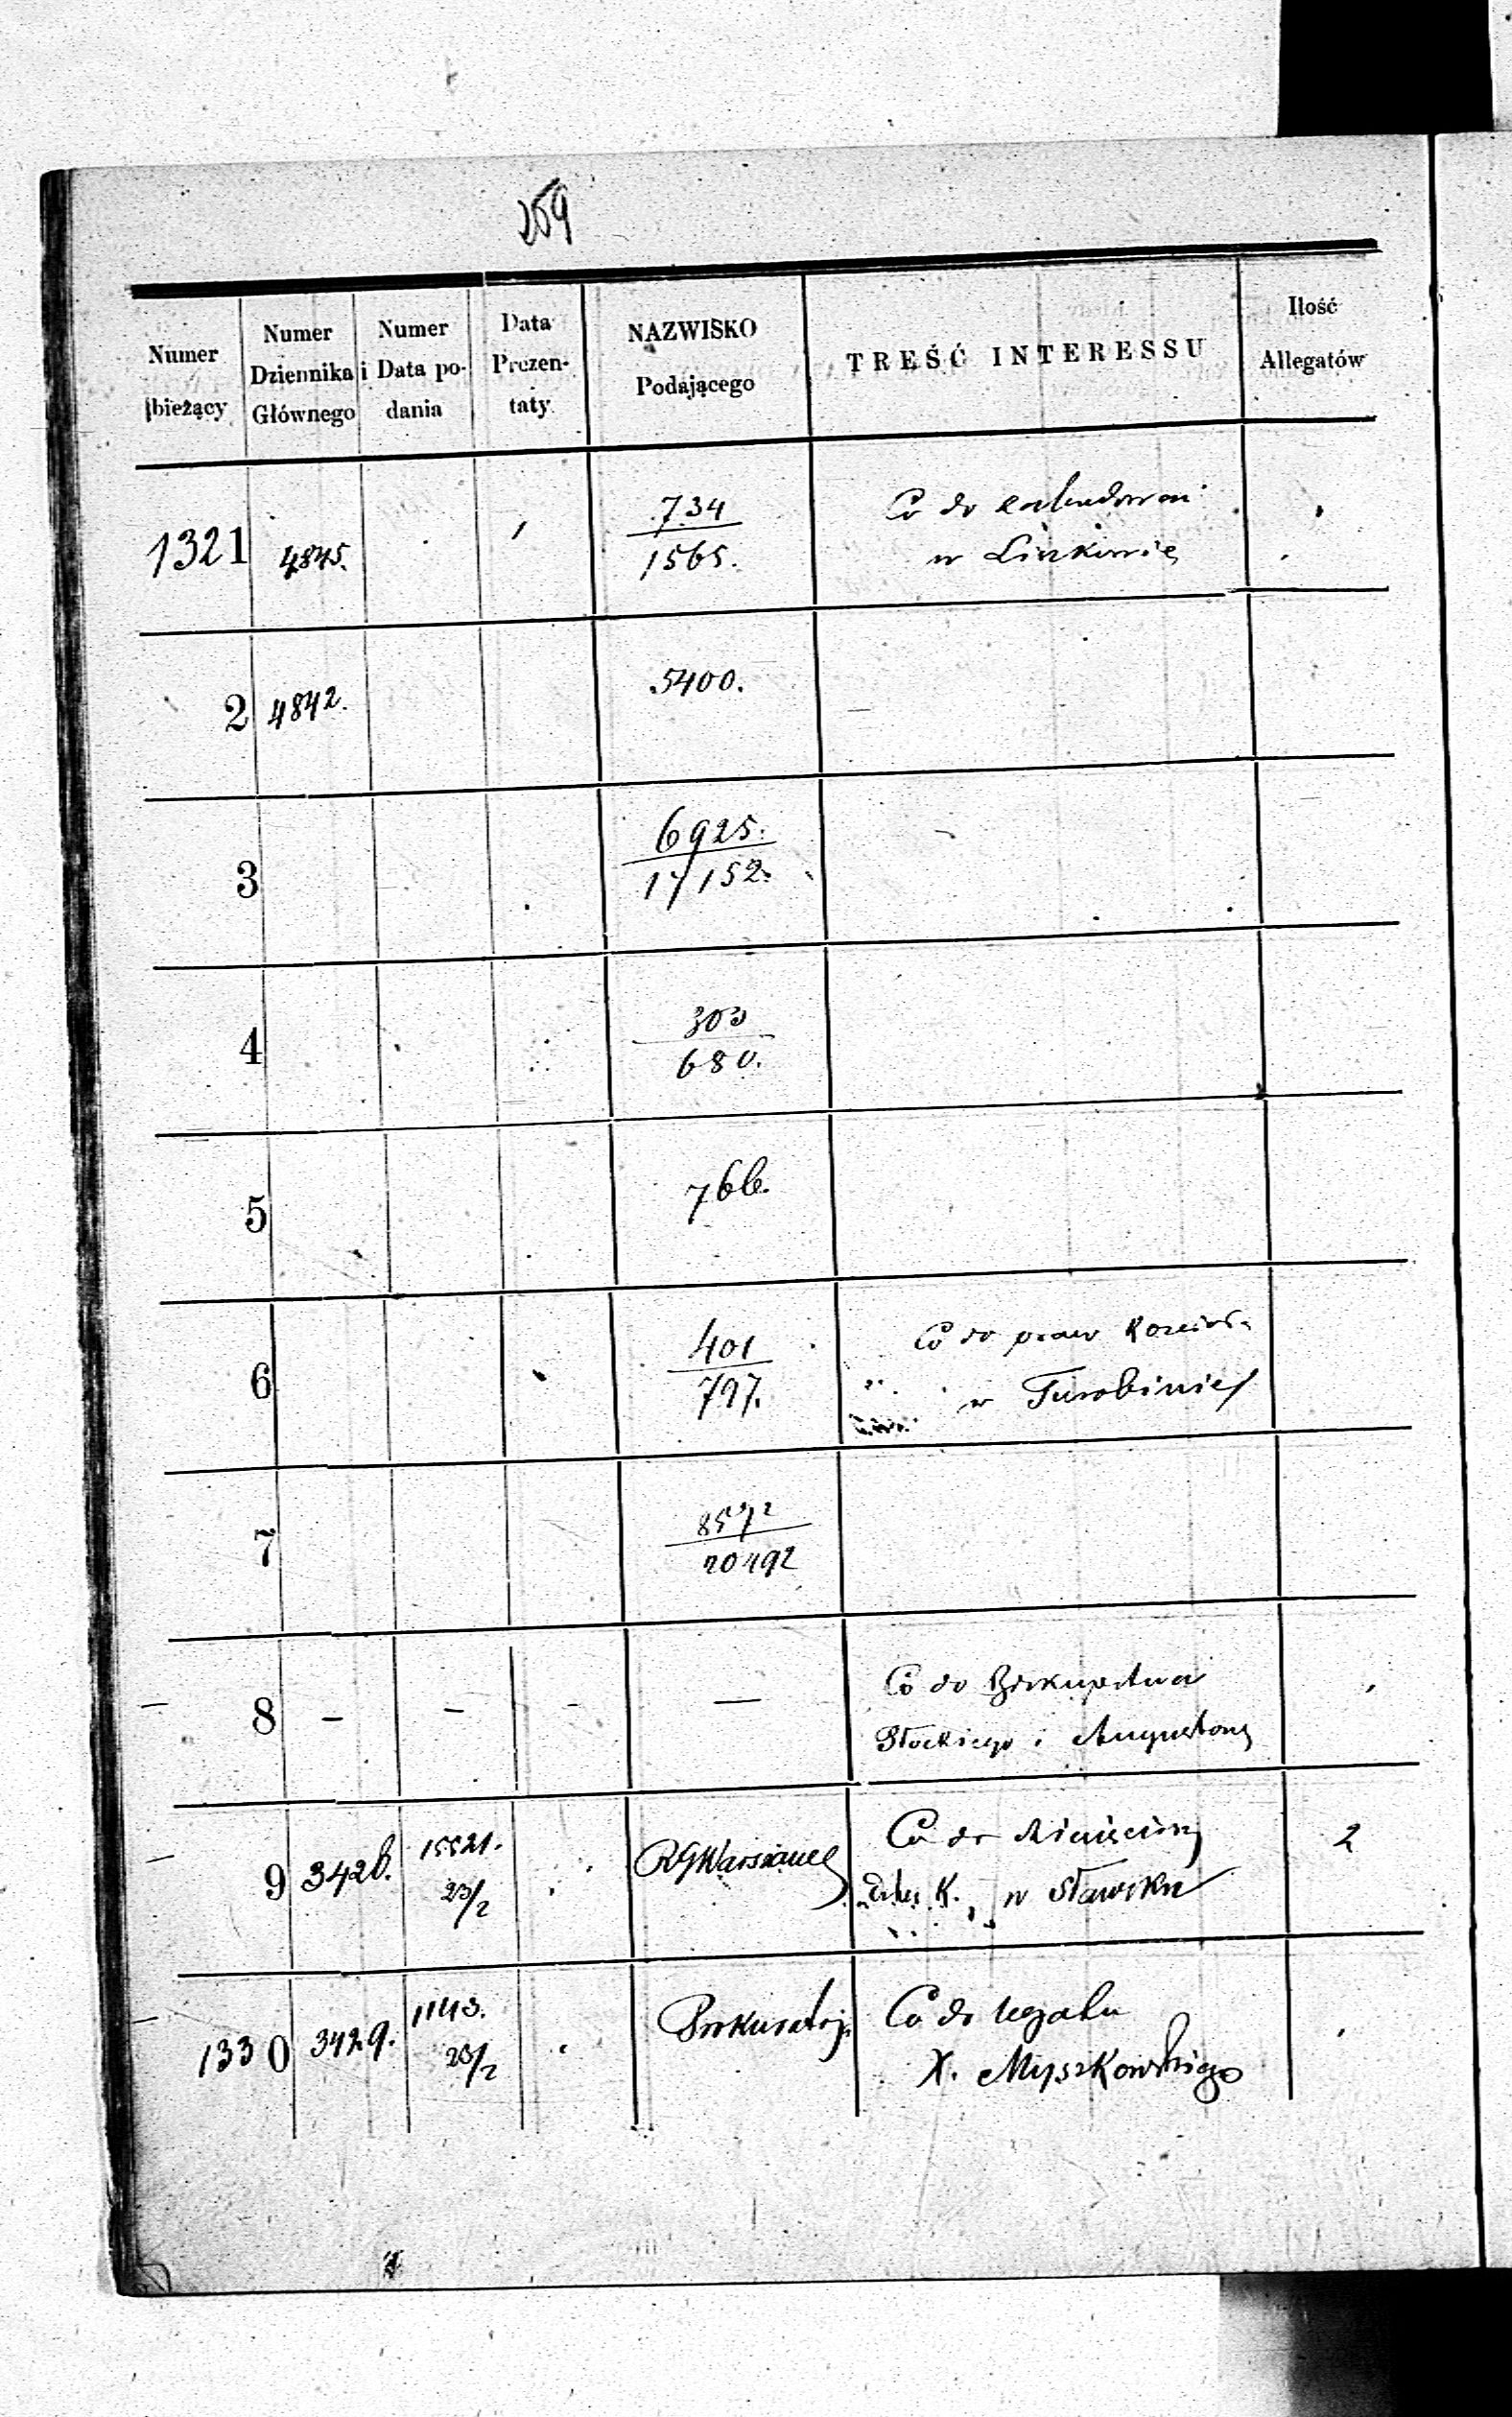 259
Numer bieżący
Numer Dziennika Głównego
Numer i Data podania
Data Prezentaty
NAZWISKO Podającego
TREŚĆ INTERESSU
Ilość Allegatów
1321 4845. 734 Co do
1565. w
2 4842. 5400.
3 6925.
17152.
4 303
680.
5 766.
6 401 Co do praw
797. w Turobinie
7 8572
20492
8 - - - — Co do Biskupstwa
Płockiego i Augustow
9 3428. 15521. RGWarszawe Co do 2
23/2 K. w Sławsku
1330 3429. 1143. Prokurator Co do legatu
23/2 X. Myszkowskiego